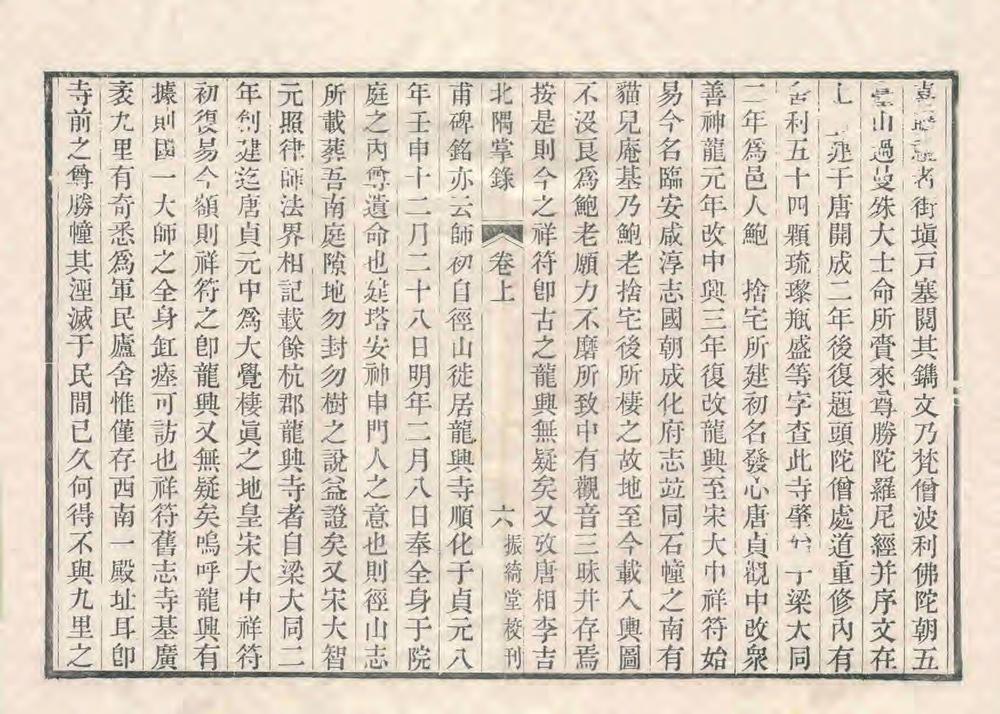 者街塡戸塞閱其鐫文乃梵僧波利佛陀朝五
山過曼殊大士命所賫來尊勝陀羅尼經并序文在
建于唐開成二年後復題頭陀僧處道重修內有
舌利五十四顆琉璨瓶盛等字查此寺肇始于梁大同
二年爲邑人鮑　捨宅所建初名發心唐貞觀中改衆
善神龍元年改中興三年復改龍興至宋大中祥符始
易今名臨安咸淳志國朝成化府志竝同石幢之南有
貓兒庵基乃鮑老捨宅後所棲之故地至今載入輿圖
不沒良爲鮑老願力不磨所致中有觀音三昧井存焉
按是則今之祥符卽古之龍興無疑矣又攷唐相李吉
北隅掌錄　卷上　六　振綺堂校刊
甫碑銘亦云師初自徑山徙居龍興寺順化于貞元八
年壬申十二月二十八日明年二月八日奉全身于院
庭之內尊遺命也建塔安神申門人之意也則徑山志
所載葬吾南庭隙地勿封勿樹之說益證矣又宋大智
元照律師法界相記載餘杭郡龍興寺者自梁大同二
年創建迄唐貞元中爲大覺棲眞之地皇宋大中祥符
初復易今額則祥符之卽龍興又無疑矣嗚呼龍興有
據則國一大師之全身缸瘞可訪也祥符舊志寺基廣
袤九里有奇悉爲軍民廬舍惟僅存西南一殿址耳卽
寺前之尊勝幢其湮滅于民間已久何得不與九里之